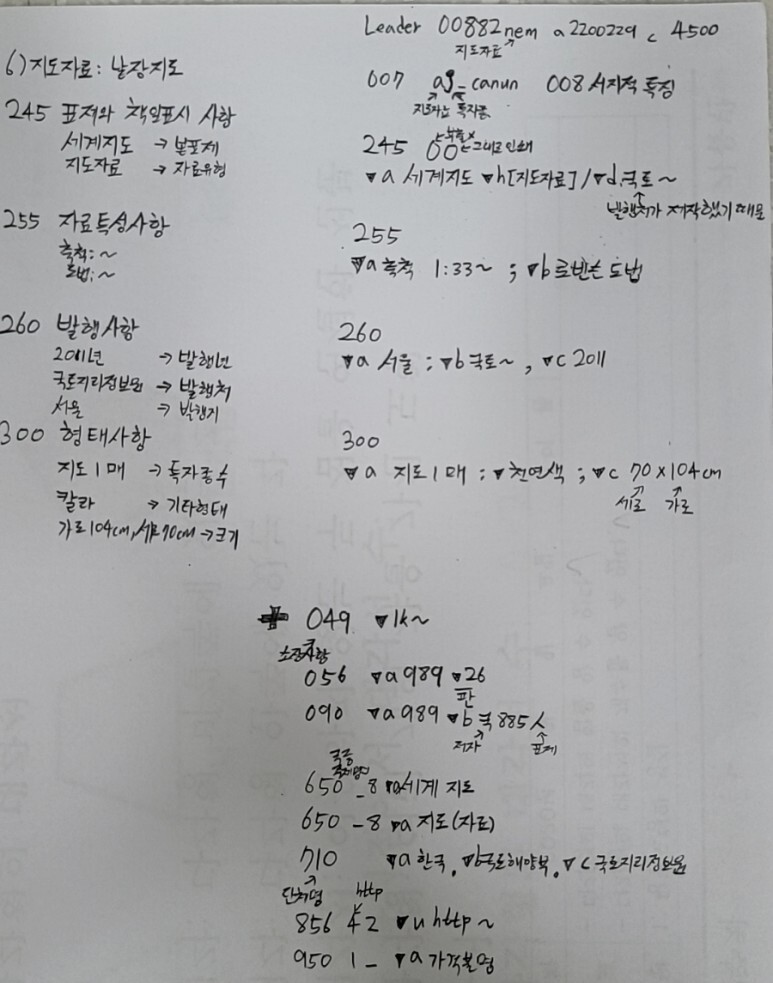 6) 지도자료: 낱장지도
245 표제와 책임표시 사항
세계지도 → 본표제
지도자료 → 자료유형
255 자료특성사항
축척: ~
도법: ~
260 발행사항
2011년 → 발행년
국토지리정보원 → 발행처
서울 → 발행지
300 형태사항
지도 1매 → 특자종수
칼라 → 기타형태
가로104cm, 세로70cm → 크기
Leader 00882nem a2200229 c 4500
지도자료
007 aj_canun 008 서지적 특징
지도자료 특자종
245 00 그대로 인쇄
▼a 세계지도 ▼h[지도자료] / ▼d 국토~
발행처가 제작했기 때문
255
▼a 축척 1:33~ ; ▼b 로빈슨 도법
260
▼a 서울 ; ▼b 국토~, ▼c 2011
300
▼a 지도 1매 ; ▼ 천연색 ; ▼c 70×104cm
세로 가로
049 ▼lk~
소장사항
056 ▼a989 ▼26
판
090 ▼a989 ▼b국885ㅅ
저자 표제
650 _8 ▼a세계 지도
650 _8 ▼a 지도(자료)
710 ▼a 한국. ▼b국토해양부. ▼c 국토지리정보원
단체명 http
856 42 ▼u http ~
950 1_ ▼a 가격불명